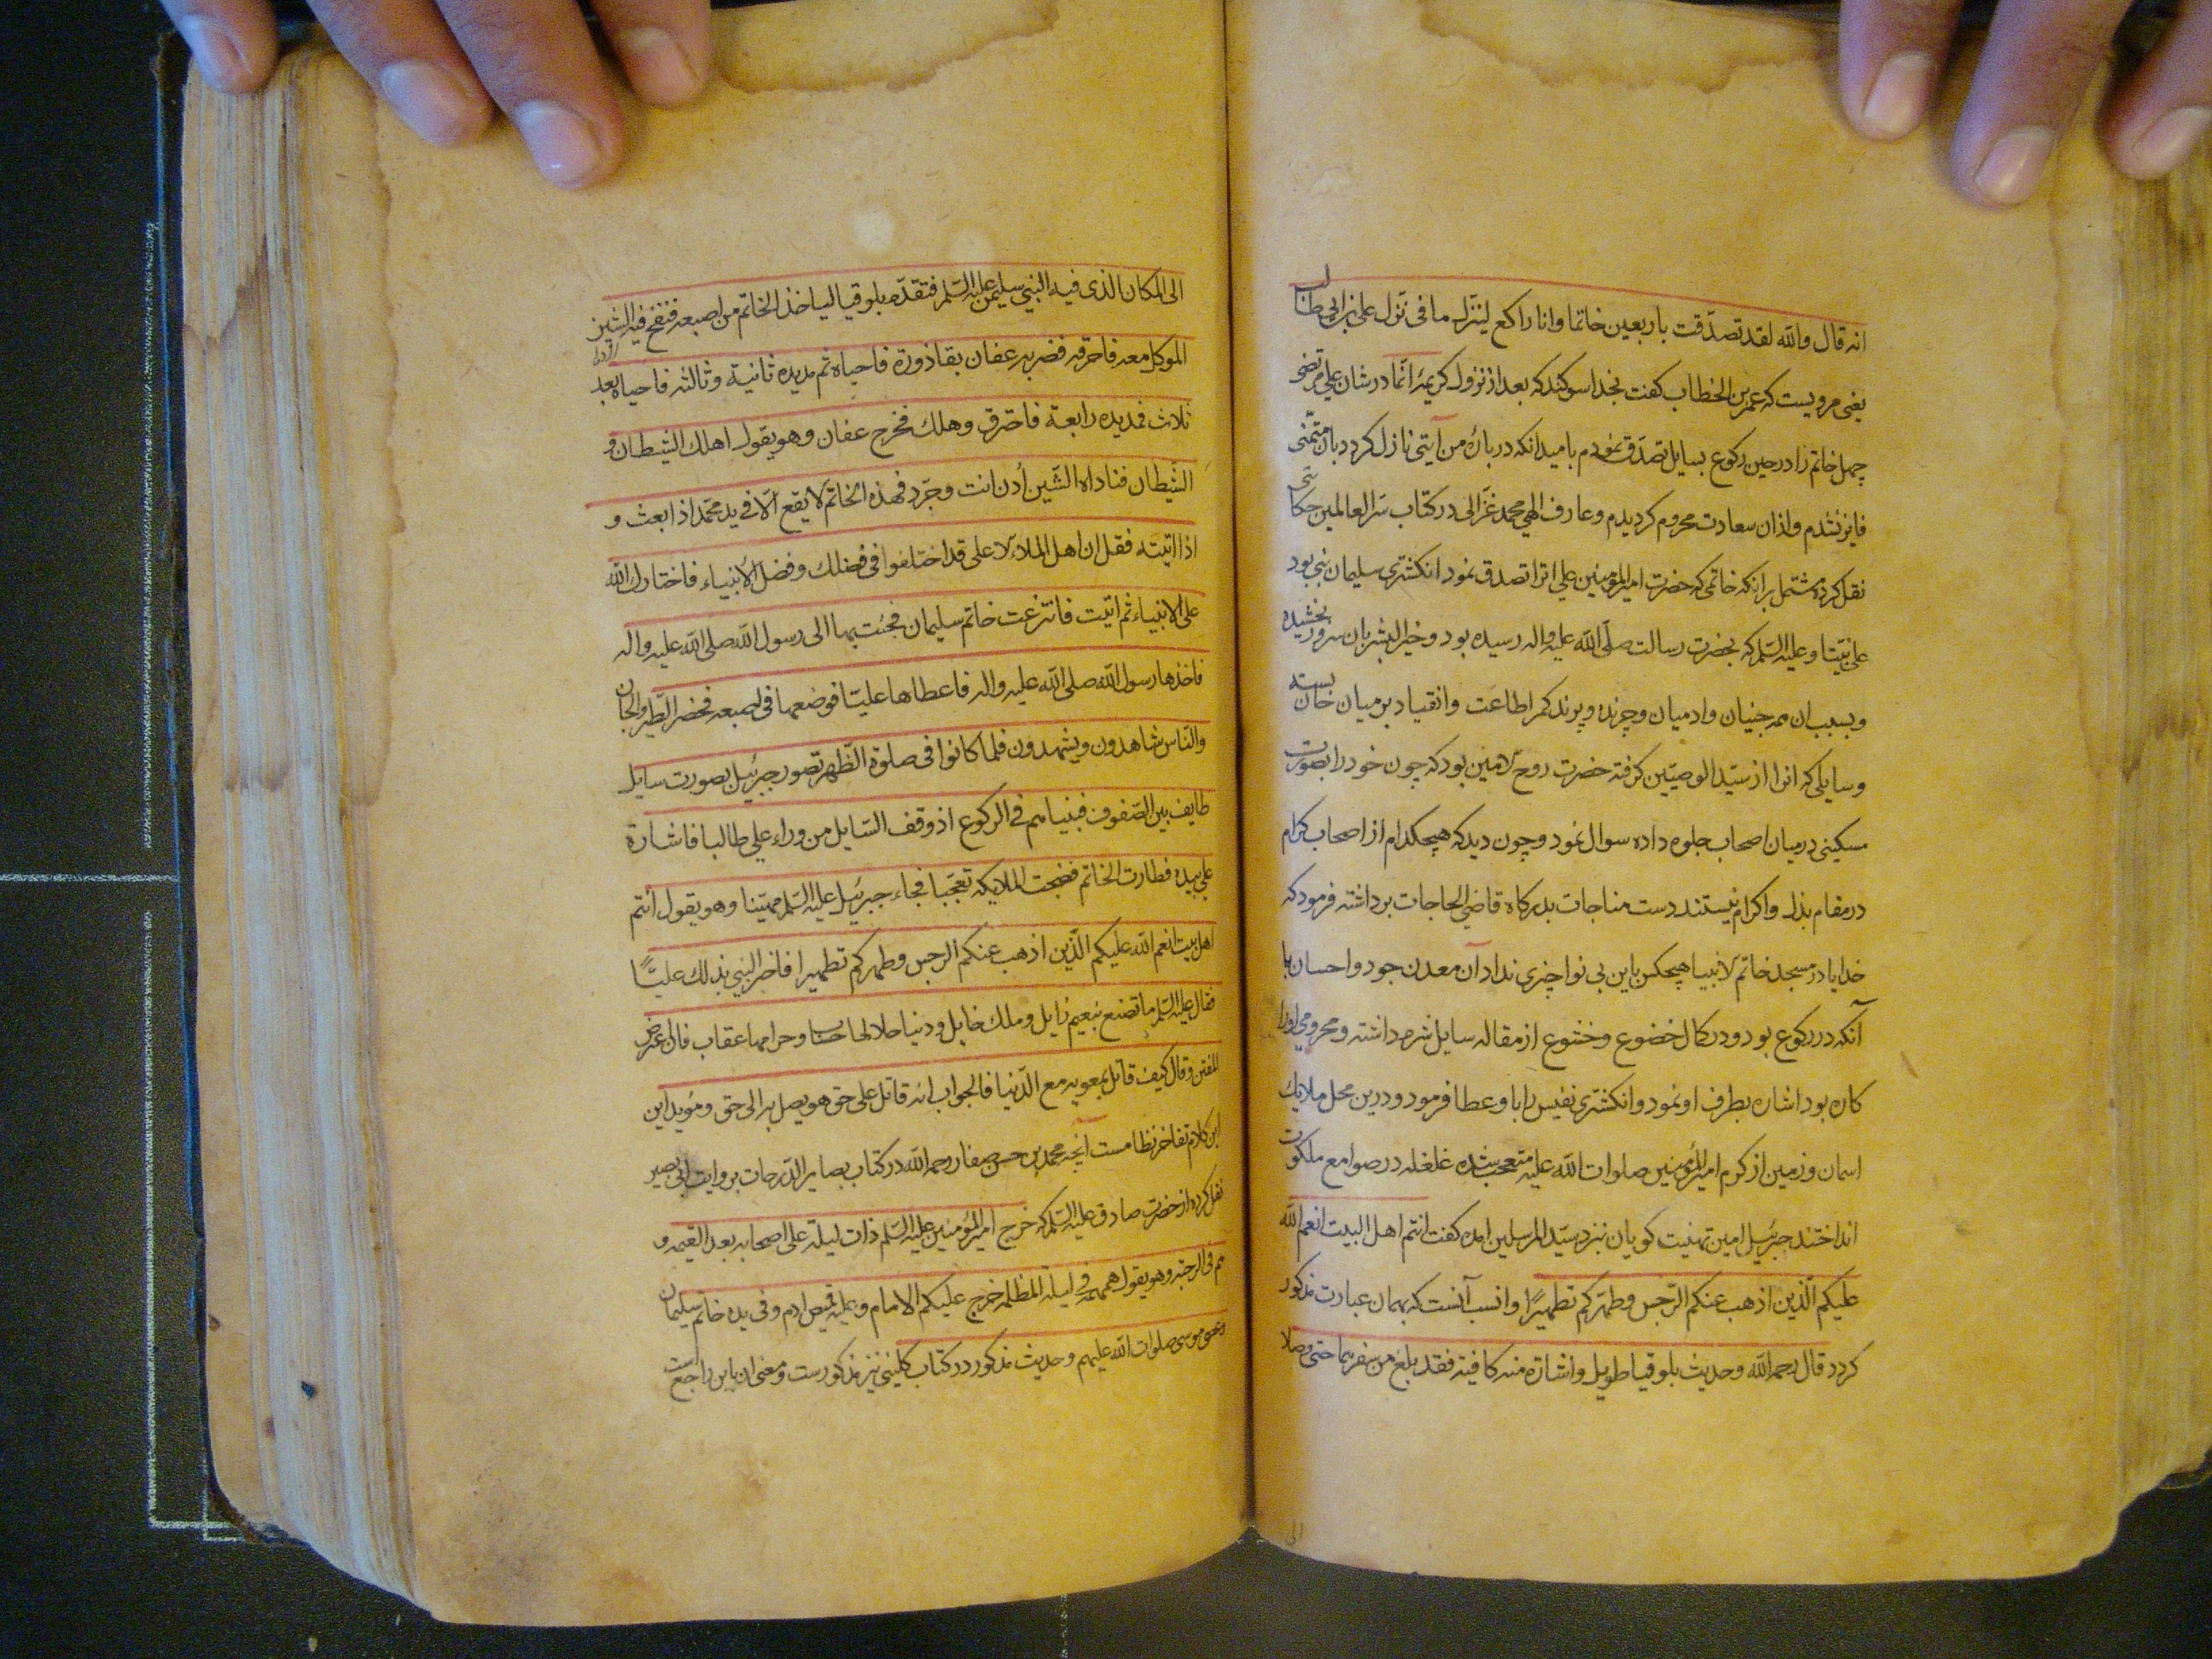 انه قال والله لقد تصدّقت باربعین خاتما وانا راکع لینزل ما فی نزل علی بن ابی طالب
یعنی مرویست که عمر بن الخطاب کفت بخدا سوکند که بعد از نزول کریمه انّما در شان علی مرتضی
چهل خاتم را در حین رکوع بسایل تصدّق نمودم بامید انکه در باره من آیتی نازل کردد بان متمنّی
فایز نشدم و از ان سعادت محروم کردیدم و عارف الهی محمد غزّالی در کتاب سرّ العالمین حکایتی
نقل کرده مشتمل بر انکه خاتمی که حضرت امیر المؤمنین علی انرا تصدق نمود انکشتری سلیمان نبی بود
علی نبیّنا و علیه السّلم که بحضرت رسالت صلّی الله علیه واله رسیده بود و خیر البشر بان سرور بخشیده
و بسبب ان همه جنیان و ادمیان و چرنده و پرنده کمر اطاعت و انقیاد بر میان جان بسته
و سایلی که انرا از سیّد الوصیّین کرفته حضرت روح لامین بود که چون خود را بصورت
مسکینی در میان اصحاب جلوه داده سوال نمود و چون دید که هیچکدام از اصحاب کرام
در مقام بذل و اکرام نیستند دست مناجات بدرکاه قاضی الحاجات برداشته فرمود که
خدایا در مسجد خاتم لانبیا هیچکس باین بی نوا چیزی نداد آن معدن جود و احسان با
آنکه در رکوع بود و در کمال خضوع و خشوع از مقاله سایل شرم داشته و محرومی او را
کاره بود اشاره بطرف او نمود و انکشتری نفیس را باو عطا فرمود و درین محل ملایک
اسمان و زمین از کرم امیر المؤمنین صلوات الله علیه متعجب شده غلغله در صوامع ملکوت
انداختند جبرئیل امین تهنیت کویان نزد سیّد المرسلین امده کفت انتم اهل البیت انعم الله
علیکم الّذین اذهب عنکم الرّجس و طهّرکم تطهیرًا و انسب آنست که بهمان عبارت مذکور
کردد قال رحمه الله وحدیث بلوقیا طویل واشارة منه کافیة فقد بلغ من سفرهما حتی وصلا
الی
الی المکان الذی فیه النبی سلیمن علیه السّلم فتقدّم بلوقیا لیاخذ الخاتم من اصبعه فنفخ فیه التنین
الموکل معه فاحرقه فضربه عفان بقاذورة فاحیاه ثم مد یده ثانیة وثالثه فاحیاه بعد
ثلاث فمد یده رابعة فاحترق وهلک فخرج عفان وهو یقول اهلک الشیطان و
الشّیطان فناداه التنین أدن انت وجرّد فهذه الخاتم لا یقع الّا فی ید محمّد اذا بعث و
اذا اتیته فقل ان اهل الملاء لا علی قد اختلفوا فی فضلک وفضل الأنبیاء فاختارک الله
علی الانبیاء ثم اتیت فانتزعت خاتم سلیمان فجئت بها الی رسول الله صلی الله علیه واله
فاخذها رسول الله صلی الله علیه واله فاعطاها علیّا فوضعها فی اصبعه فحضر الطّیر والجان
والنّاس یشاهدون ویشهدون فلما کانوا فی صلوة الظّهر تصور جبرئیل بصورت سایل
طایف بین الصّفوف فبنیاهم فی الرکوع اذ وقف السّایل من وراء علی طالبا فاشارة
علی بیده فطارت الخاتم فضجت الملایکه تعجّبا فجاء جبرئیل علیه السّلم مهنّیا وهو یقول أنتم
اهل بیت انعم الله علیکم الّذین اذهب عنکم الرجس وطهرکم تطهیرا فاخبر النبی بذلک علیّا
فقال علیه السّلم ما تصنع بنعیم زایل وملک حایل ودنیا حلالها حساب وحرامها عقاب فان اعترض
المفتن وقال کیف قاتل بمعویه مع الدّنیا فالجواب انّه قاتل علی حق هو یصل به الی حق ومؤید این
این کلام تفاخر نظامست آنچه محمد بن حسن صفار رحمه الله در کتاب بصایر الدّرجات بروایت ابی بصیر
نقل کرده از حضرت صادق علیه السّلم که خرج امیر المؤمنین علیه السّلم ذات لیلة علی اصحابه بعد العتمه و
هم فی الرحبة وهو یقول همهمة فی لیلة المظلمه خرج علیکم الامام وعلیه قمیص ادم وفی یده خاتم سلیمان
وعصی موسی صلوات الله علیهم وحدیث مذکور در کتاب کلینی نیز مذکورست ومعنی ان باین راجع است